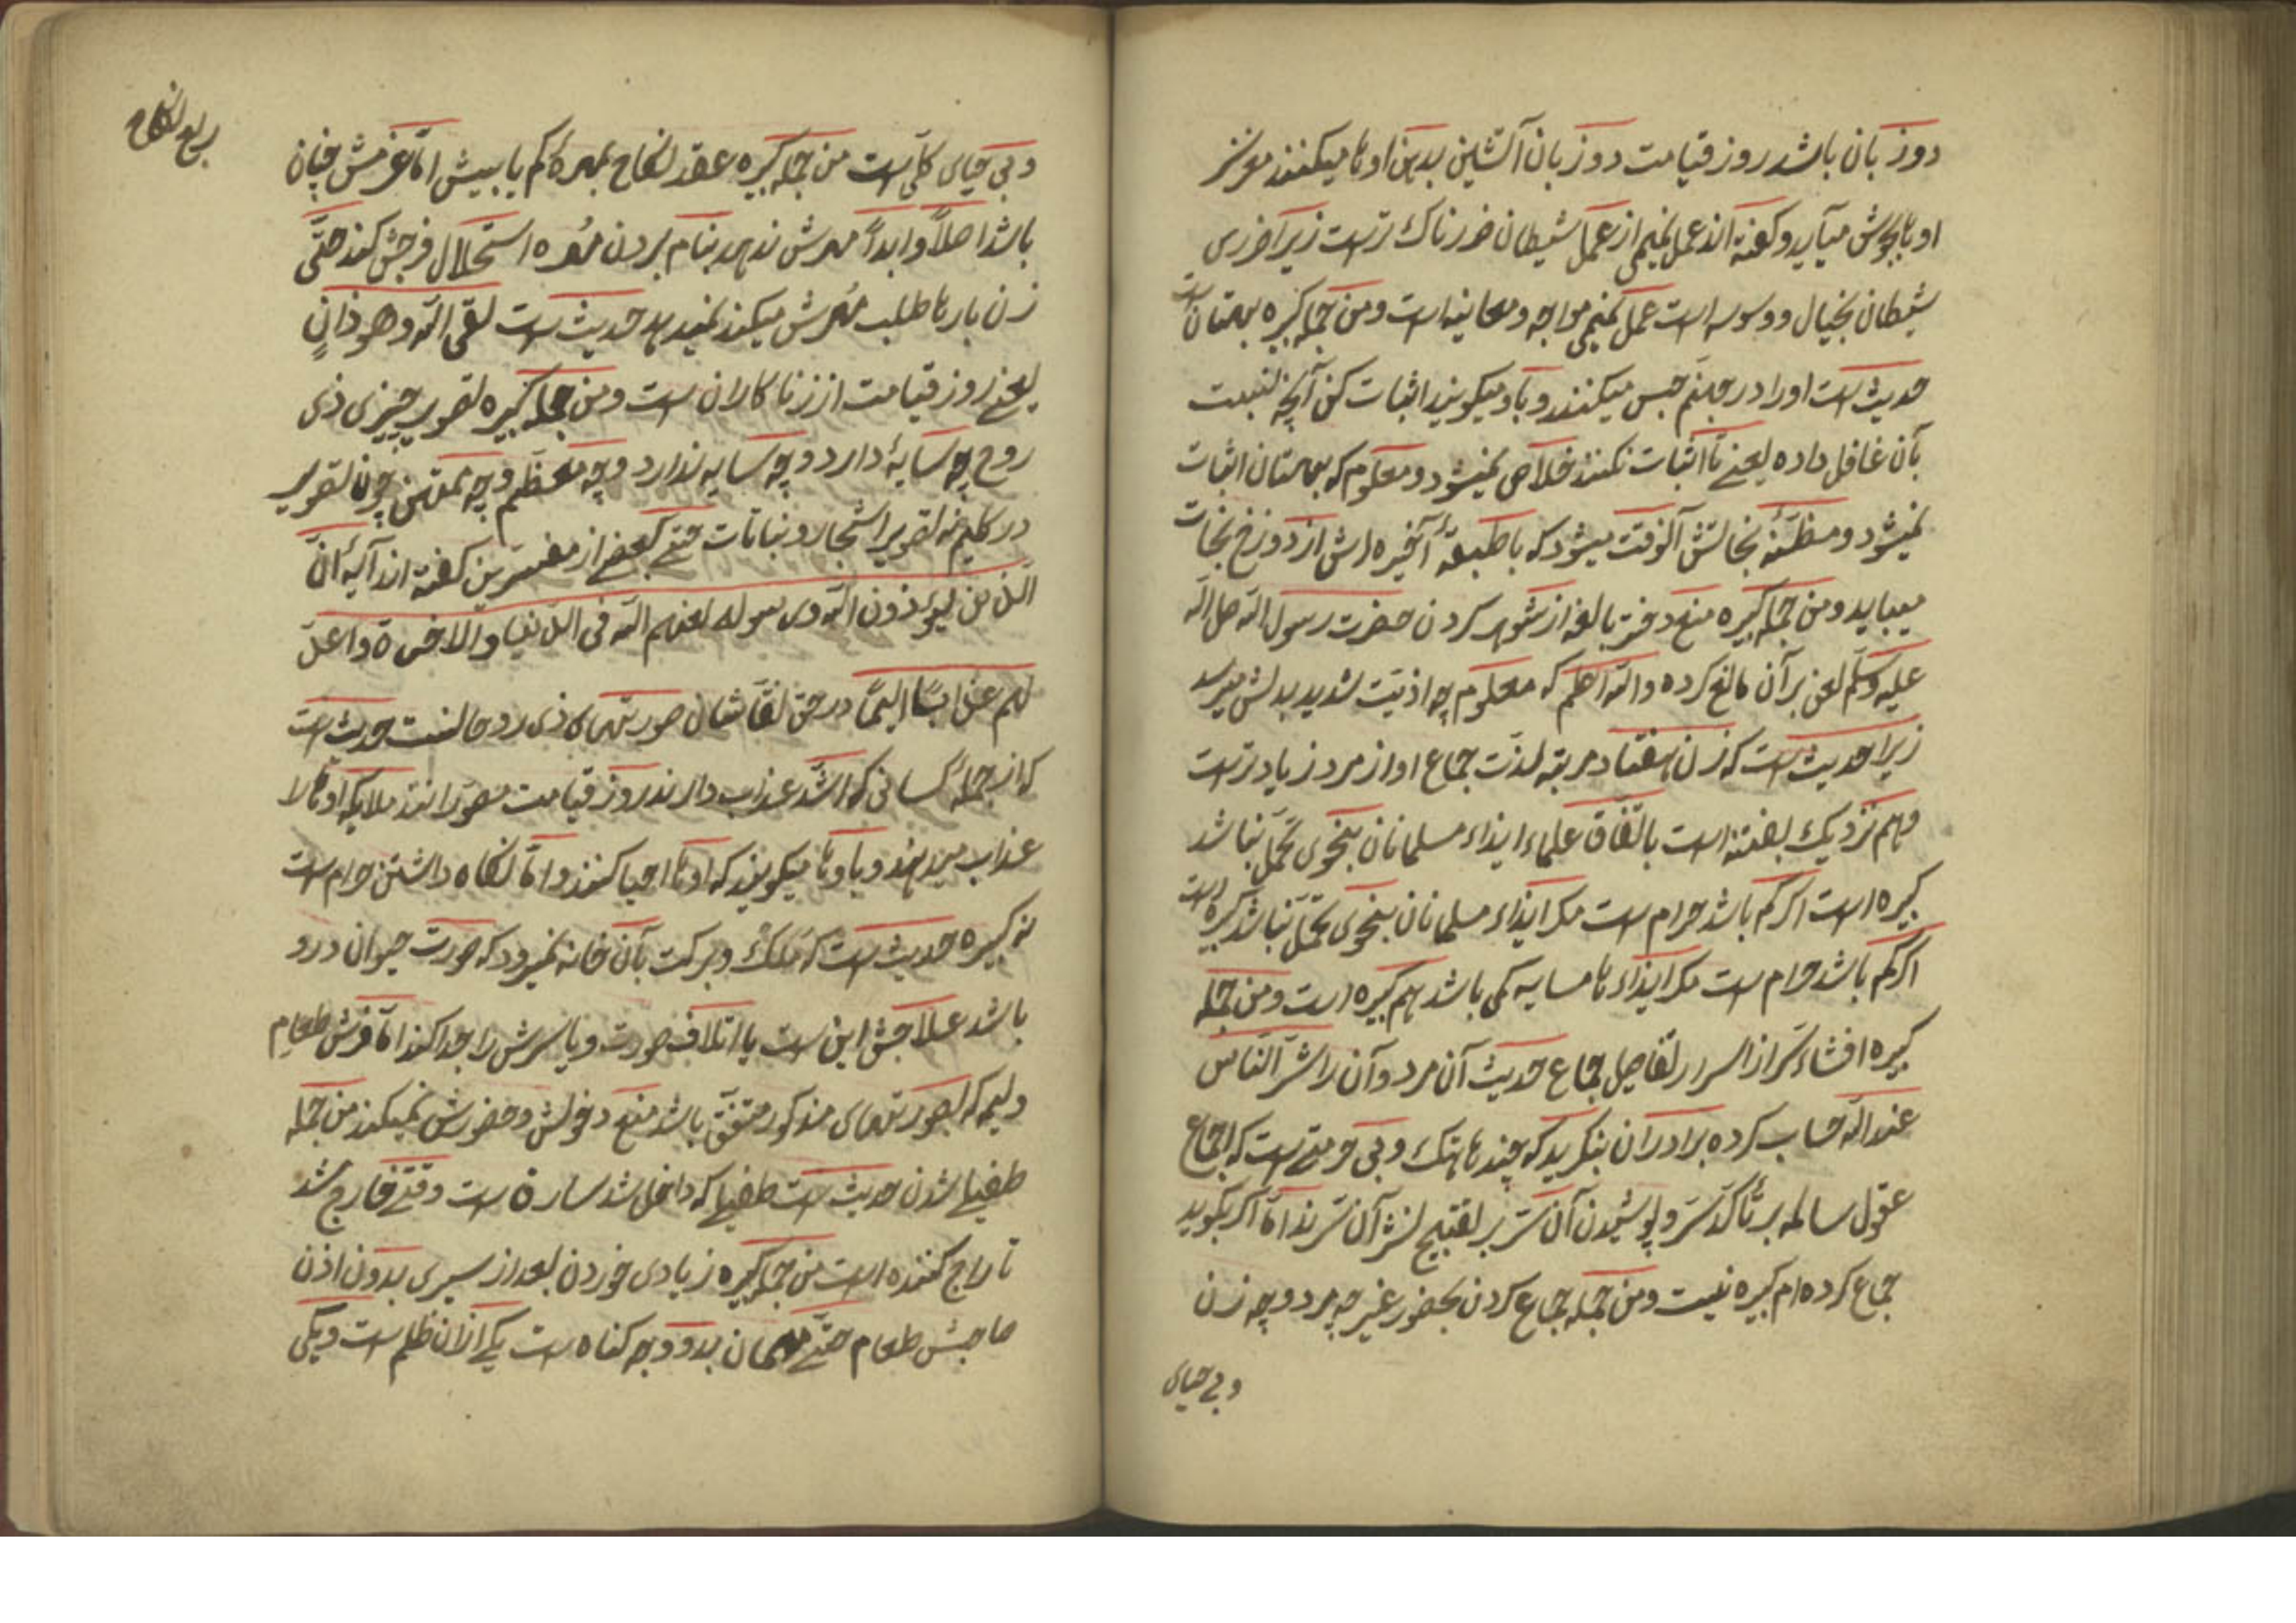 دو زبان باشد روز قیامت دو زبان آتشین بدهن اوها میکنند مغز
اوها بجوش میآید و گفته‌اند عمل نمیمی از عمل شیطان ضررناک ترست زیرا ضرری
شیطان بخیال و وسوسه است عمل نمیمی مواجه و معاینه است و من جمله کبیره بهتان است
حدیث است او را در جهنم حبس میکنند و باو میگویند اثبات کن آنچه نسبت
بآن غافل داده یعنی تا اثبات نکنند خلاص نمیشود و معلوم که بهتان اثبات
نمیشود و مظنّه نجاتش آنوقت میشود که با طبقهٔ آخیره اش از دوزخ نجات
میبابد و من جمله کبیره منع دختر بالغه از شوهر کردن حضرت رسول الله صلی الله
علیه وسلّم لعن بر آن مانع کرده والله اعلم که معلوم چه اذیّت شدید بدلش میرسد
زیرا حدیث است که زن هفتاد مرتبه لذّت جماع او از مرد زیادترست
وهم نزدیک بفتنه است باتّفاق علماء ایذاء مسلمانان بنحوی تحمّل نباشد
کبیره است اگر کم باشد حرام ست مگر ایذاء مسلمانان بنحوی تحمّل نباشد کبیره است
اگر کم باشد حرام ست مگر ایذاء هامسایه کمی باشد هم کبیره است و من جمله
کبیره افشاء سرّ از اسرار تفاصیل جماع حدیث آن مرد و آن را شرّ النّاس
عند الله حساب کرده برادران بنگرید که چندها هتک و بی حرمتی ست که اجماع
عقول سالمه بر تأکّد ستر و پوشیدن آن ستر بر تقبیح نشر آن سرّند امّا اگر بگوید
جماع کرده‌ام کبیره نیست و من جمله جماع کردن بحضور غیر چه مرد و چه زن
و بی حیای
و بی حیای کلّی است من جمله کبیره عقد نکاح بمهرهٔ کم یا بیش امّا غرضش چنان
باشد اصلاً و ابداً مهرش ندهد بنام بردن مهره استحلال فرجش کند حتّی
زن بارها طلب مهرش میکند نمیدهد حدیث ست لقی الله وهو زانٍ
یعنی روز قیامت از زناکاران ست و من جمله کبیره تصویر چیزی ذی
روح چه سایهٔ دارد و چه سایه ندارد و چه معظّم و چه ممتهن چون تصویر
در کلیم نه تصویر اشجار و نباتات حتی بعضی از مفسّرین گفته‌اند آیهٔ انّ
الّذین یؤذون الله ورسوله لعنهم الله فی الدّنیا والاخرة واعدّ
لهم عذاباً الیماً در حق نقّاشان صورتهای ذی روحانست حدیث است
که از جملهٔ کسانی که اشدّ عذاب دارند روز قیامت مصوّرانند ملایکه اوها را
عذاب میدهند و باوها میگویند که اوها احیا کنند و امّا نگاه داشتن حرام است
نه کبیره حدیث ست که ملک و برکت بآن خانه نمیرود که صورت حیوان درو
باشد علاجش این ست یا اتلاف صورت و یا سرش را جدا کند امّا فرش طعام
ولیمه که بصورتهای مذکور متفق باشد منع دخولش و حضورش نمیکند من جمله
طفیلی شدن حدیث ست طفیلی که داخل شد سارق ست وقتی خارج شد
تاراج کننده است من جمله کبیره زیادی خوردن بعد از سیری بدون اذن
صاحبش طعام حتّی مهمان بدو وجه گناه ست یکی ازان ظلم ست و یکی
ربع النکاح